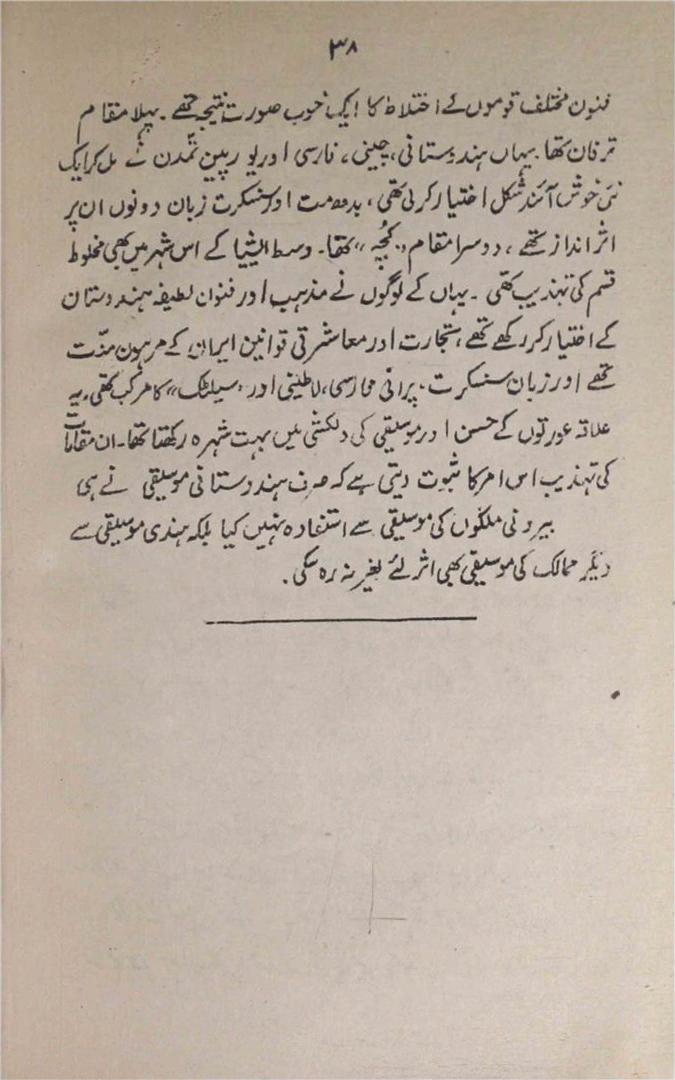 ۳۸
فنون مختلف قوموں کے اختلاط کا ایک خوب صورت نتیجہ تھے ۔ پہلا مقام
ترفان تھا۔ یہاں ہندوستانی، چینی، فارسی اور یورپین تمّدن نے مل کر ایک
نئی خوش آئند شکل اختیار کرلی تھی، بدھ مت اور سنسکرت زبان دونوں ان پر
اثر انداز تھے، دوسرا مقام ”کُچہ“ تھا۔ وسط ایشیا کے اس شہر میں بھی مخلوط
قسم کی تہذیب تھی ۔ یہاں کے لوگوں نے مذہب اور فنون لطیفہ ہندوستان
کے اختیار کر رکھے تھے، تجارت اور معاشرتی قوانین ایران کے مرہون منّت
تھے اور زبان سنسکرت، پرانی فارسی، لاطینی اور ”سیلٹک“ کا مرکب تھی۔ یہ
علاقہ عورتوں کے حسن اور موسیقی کی دلکشی میں بہت شہرہ رکھتا تھا۔ ان مقامات
کی تہذیب اس امر کا ثبوت دیتی ہے کہ صرف ہندوستانی موسیقی نے ہی
بیرونی ملکوں کی موسیقی سے استفادہ نہیں کیا بلکہ ہندی موسیقی سے
دیگر ممالک کی موسیقی بھی اثر لئے بغیر نہ رہ سکی۔